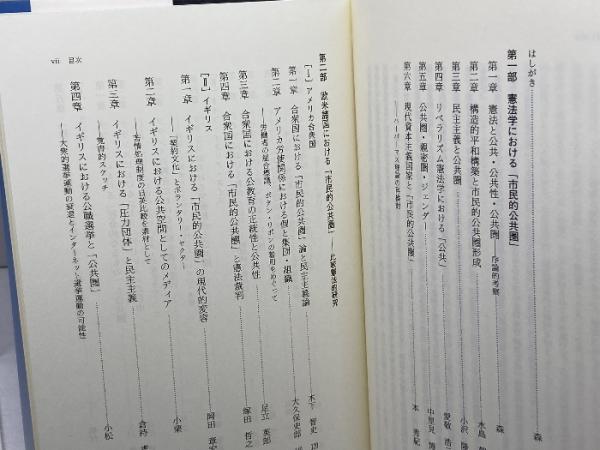 はしがき 森
第一部　憲法学における「市民的公共圏」
第一章　憲法と公共・公共性・公共圏　序論的考察 森
第二章　構造的平和構築と市民的公共圏形成 水島
第三章　民主主義と公共圏 小沢 隆
第四章　リベラリズム憲法学における「公共」 愛敬 浩
第五章　公共圏・親密圏・ジェンダー 中里見 博
第六章　現代資本主義国家と「市民的公共圏」 本 秀紀
──ハーバーマス理論の再検討
第二部　欧米諸国における「市民的公共圏」──比較憲法的研究
［Ⅰ］アメリカ合衆国
第一章　合衆国における「市民的公共圏」論と民主主義論 木下 智史
第二章　アメリカ労使関係における個と集団・組織 大久保史郎
──労働者の団合権、ボタン・リボンの着用をめぐって
第三章　合衆国における公教育の正統性と公共性 足立 英郎
第四章　合衆国における「市民的公共圏」と憲法裁判 塚田 哲之
［Ⅱ］イギリス
第一章　イギリスにおける「市民的公共圏」の現代的変容 岡田 章宏
──「契約文化」とボランタリー・セクター
第二章　イギリスにおける公共空間としてのメディア 小栗
──苦情処理制度の日英比較を素材として
第三章　イギリスにおける「圧力団体」と民主主義 倉持
──覚書的スケッチ
第四章　イギリスにおける公職選挙と「公共圏」 小松
──大衆的選挙運動の衰退とインターネット選挙運動の可能性
vii　目次